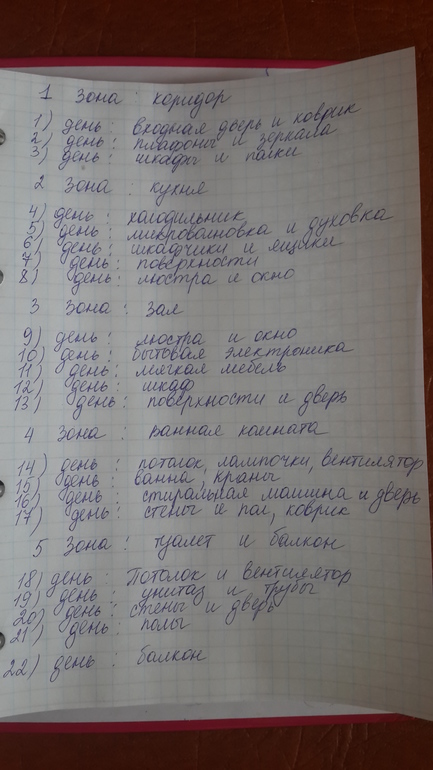 1 Зона: коридор
1) день: входная дверь и коврик
2) день: плафоны и зеркала
3) день: шкафы и полки
2 Зона: кухня
4) день: холодильник
5) день: микроволновка и духовка
6) день: шкафчики и ящики
7) день: поверхности
8) день: люстра и окно
3 Зона: Зал
9) день: люстра и окно
10) день: бытовая электроника
11) день: мягкая мебель
12) день: шкаф
13) день: поверхности и дверь
4 Зона: ванная комната
14) день: потолок, лампочки, вентилятор
15) день: ванна, краны
16) день: стиральная машина и дверь
17) день: стены и пол, коврик
5 Зона: туалет и балкон
18) день: Потолок и вентилятор
19) день: унитаз и трубы
20) день: стены и дверь
21) день: полы
22) день: балкон